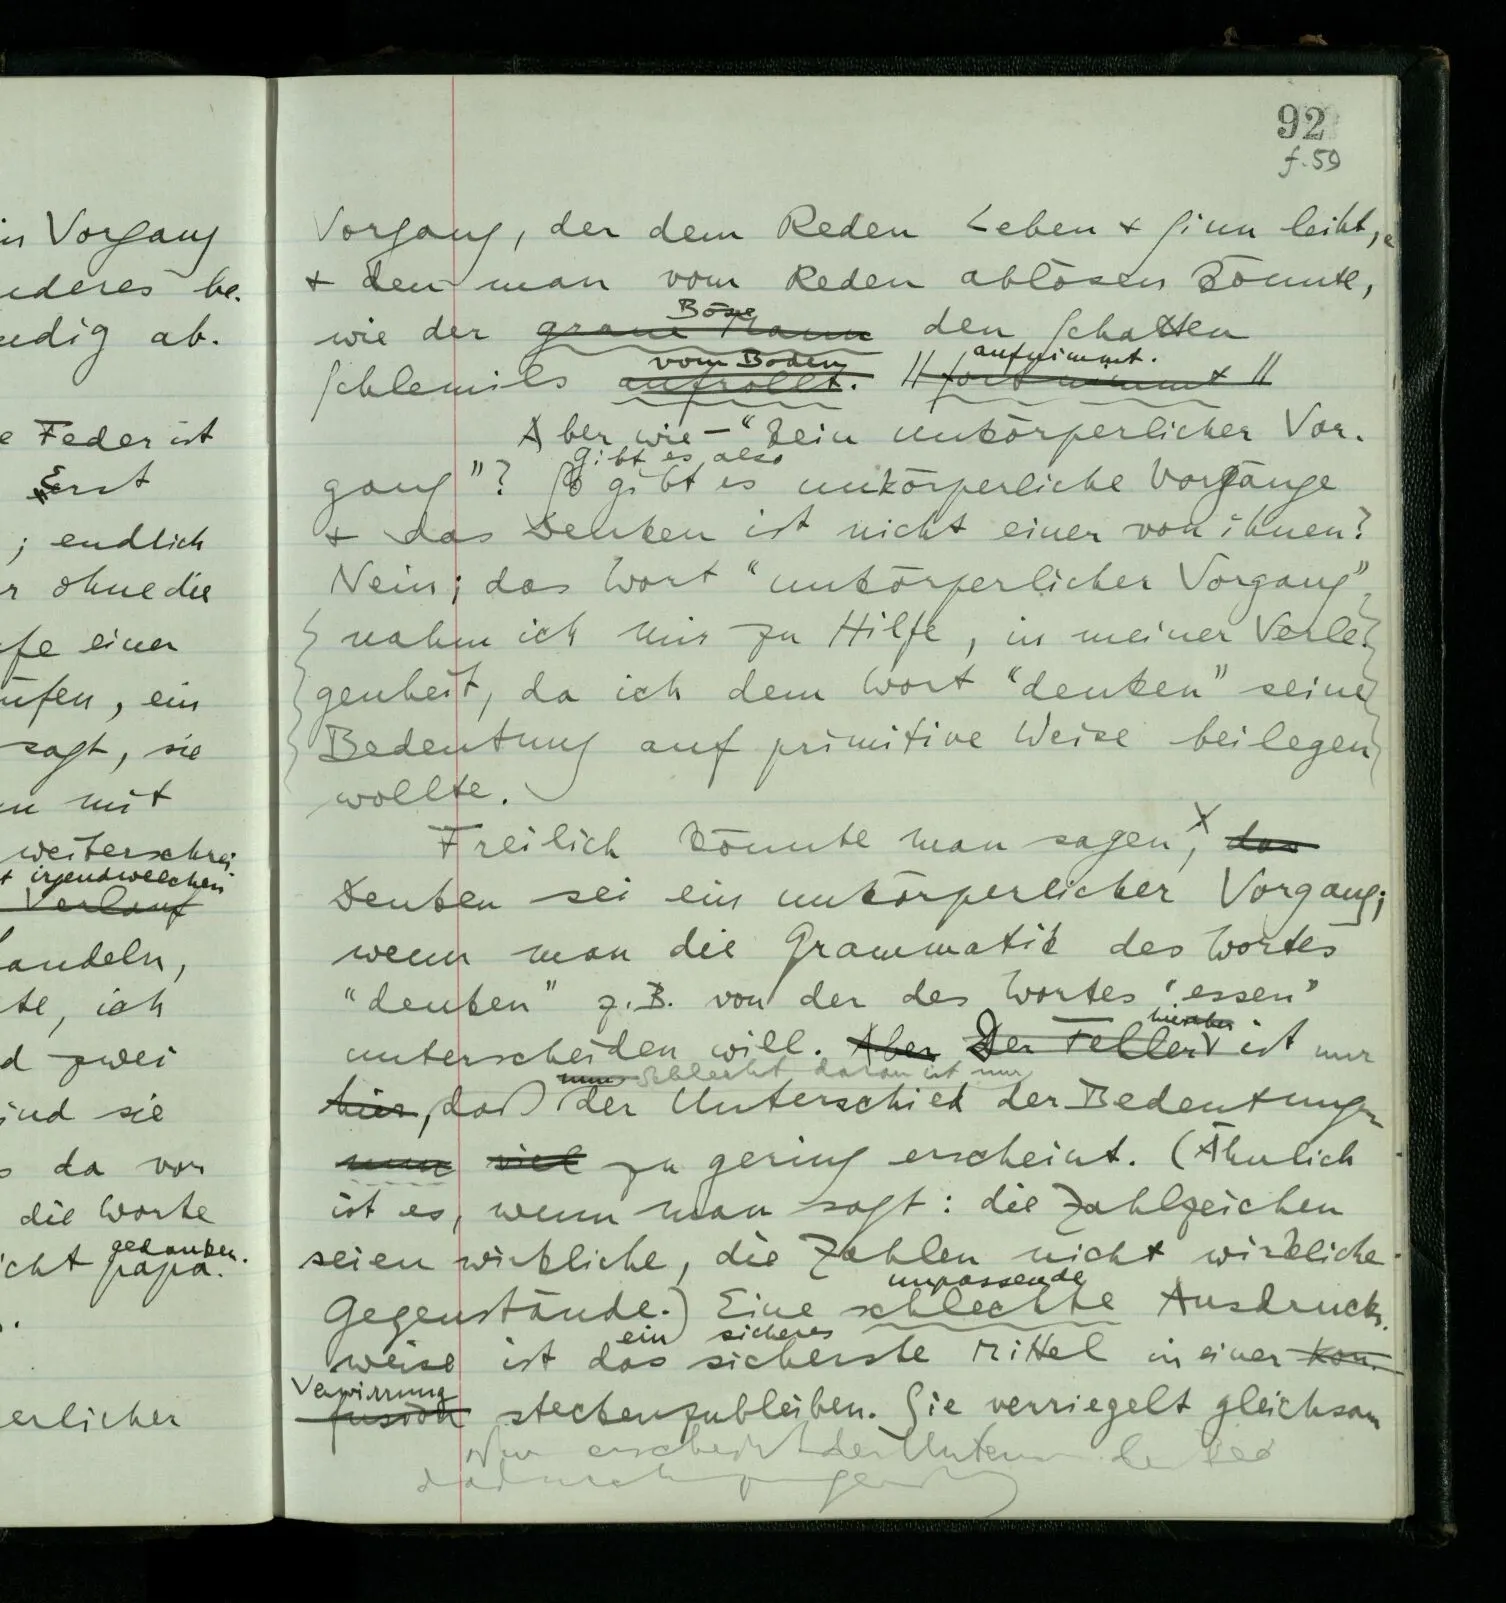 in Vorgang
nderes be-
ndig ab.
e Feder ist
"Erst
; endlich
r ohne die
fe einer
üfen, ein
sagt, sie
n mit
weiterschrei-
+ irgendwelchen
Verlauf
andeln,
te, ich
d zwei
ind sie
s da vor
die Worte
gedanken-
icht papa.
erlicher
92
f.59
Vorgang, der dem Reden Leben + Sinn leiht,
+ den man vom Reden ablösen könnte,
Böse
wie der graue Mann den Schatten
vom Boden aufnimmt.
Schlemihls aufrollt. // fortnimmt //
Aber wie – "kein unkörperlicher Vor-
gibt es also
gang"? So gibt es unkörperliche Vorgänge
+ das Denken ist nicht einer von ihnen?
Nein; das Wort "unkörperlicher Vorgang"
nahm ich mir zu Hilfe, in meiner Verle-
genheit, da ich dem Wort "denken" seine
Bedeutung auf primitive Weise beilegen
wollte.
Freilich könnte man sagen, das
Denken sei ein unkörperlicher Vorgang;
wenn man die Grammatik des Wortes
"denken" z.B. von der des Wortes "essen"
hierbei
unterscheiden will. Aber Der Fehler ist nur
nur schlecht daran ist nur
hier, daß der Unterschied der Bedeutungen
nun viel zu gering erscheint. (Ähnlich
ist es, wenn man sagt: die Zahlzeichen
seien wirkliche, die Zahlen nicht wirkliche
unpassende
Gegenstände.) Eine schlechte Ausdrucks-
ein sicheres
weise ist das sicherste Mittel in einer Kon-
Verwirrung
fusion steckenzubleiben. Sie verriegelt gleichsam
Nur erscheint der Unter
dadurch zu gering